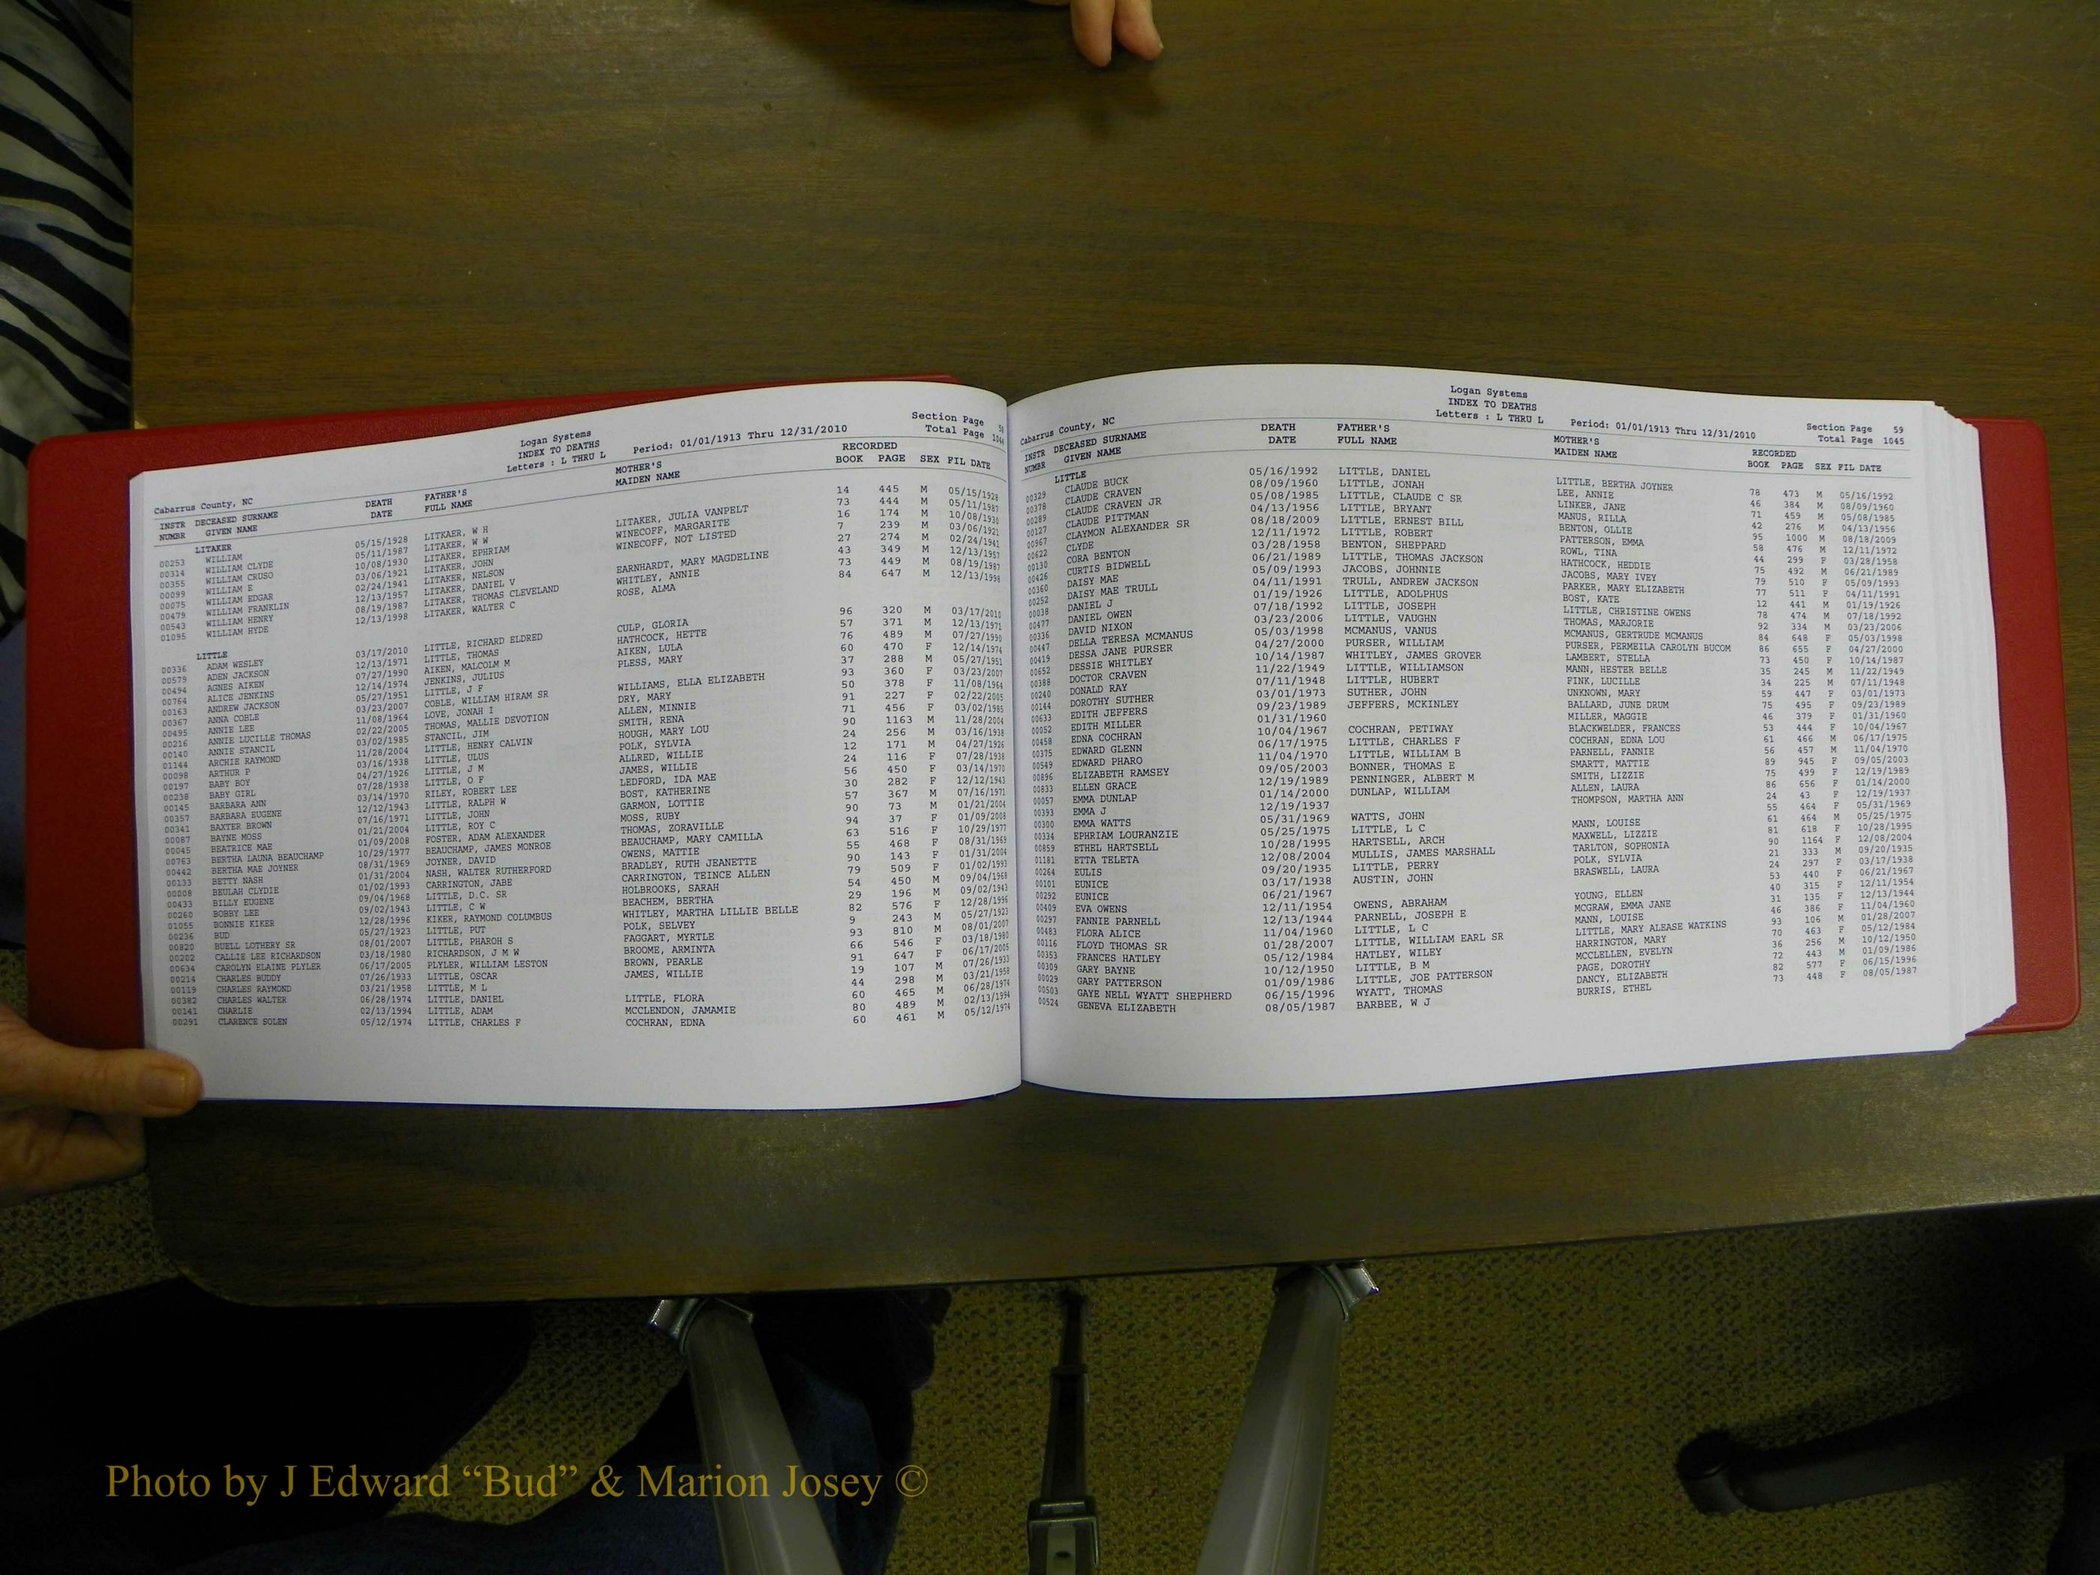 Logan Systems
INDEX TO DEATHS
Letters : L THRU L
Period: 01/01/1913 Thru 12/31/2010
Section Page 58
Total Page 1044
Cabarrus County, NC
INSTR DECEASED SURNAME DEATH FATHER'S MOTHER'S RECORDED
NUMBR GIVEN NAME DATE FULL NAME MAIDEN NAME BOOK PAGE SEX FIL DATE
LITAKER
00253 WILLIAM 05/15/1928 LITKAER, W H 14 445 M 05/15/1928
00314 WILLIAM CLYDE 05/11/1987 LITAKER, W W LITAKER, JULIA VANPELT 73 444 M 05/11/1987
00355 WILLIAM CRUSO 10/08/1930 LITAKER, EPHRIAM WINECOFF, MARGARITE 16 174 M 10/08/1930
00099 WILLIAM E 03/06/1921 LITAKER, JOHN WINECOFF, NOT LISTED 7 239 M 03/06/1921
00075 WILLIAM EDGAR 02/24/1941 LITAKER, NELSON 27 274 M 02/24/1941
00479 WILLIAM FRANKLIN 12/13/1957 LITAKER, DANIEL V EARNHARDT, MARY MAGDELINE 43 349 M 12/13/1957
00543 WILLIAM HENRY 08/19/1987 LITAKER, THOMAS CLEVELAND WHITLEY, ANNIE 73 449 M 08/19/1987
01095 WILLIAM HYDE 12/13/1998 LITAKER, WALTER C ROSE, ALMA 84 647 M 12/13/1998
LITTLE
00336 ADAM WESLEY 03/17/2010 LITTLE, RICHARD ELDRED CULP, GLORIA 96 320 M 03/17/2010
00579 ADEN JACKSON 12/13/1971 LITTLE, THOMAS HATHCOCK, HETTE 57 371 M 12/13/1971
00494 AGNES AIKEN 07/27/1990 AIKEN, MALCOLM M AIKEN, LULA 76 489 F 07/27/1990
00764 ALICE JENKINS 12/14/1974 JENKINS, JULIUS PLESS, MARY 60 470 F 12/14/1974
00163 ANDREW JACKSON 05/27/1951 LITTLE, J F 37 288 M 05/27/1951
00367 ANNA COBLE 03/23/2007 COBLE, WILLIAM HIRAM SR WILLIAMS, ELLA ELIZABETH 93 360 F 03/23/2007
00495 ANNIE LEE 11/08/1964 LOVE, JONAH I DRY, MARY 50 378 F 11/08/1964
00216 ANNIE LUCILLE THOMAS 02/22/2005 THOMAS, MALLIE DEVOTION ALLEN, MINNIE 91 227 F 02/22/2005
00140 ANNIE STANCIL 03/02/1985 STANCIL, JIM SMITH, RENA 71 456 F 03/02/1985
01144 ARCHIE RAYMOND 11/28/2004 LITTLE, HENRY CALVIN HOUGH, MARY LOU 90 1163 M 11/28/2004
00098 ARTHUR P 03/16/1938 LITTLE, ULUS POLK, SYLVIA 24 256 M 03/16/1938
00197 BABY BOY 04/27/1926 LITTLE, J M ALLRED, WILLIE 12 171 M 04/27/1926
00238 BABY GIRL 07/28/1938 LITTLE, O F JAMES, WILLIE 24 116 F 07/28/1938
00145 BARBARA ANN 03/14/1970 RILEY, ROBERT LEE LEDFORD, IDA MAE 56 450 F 03/14/1970
00357 BARBARA EUGENE 12/12/1943 LITTLE, RALPH W BOST, KATHERINE 30 282 F 12/12/1943
00341 BAXTER BROWN 07/16/1971 LITTLE, JOHN GARMON, LOTTIE 57 367 M 07/16/1971
00087 BAYNE MOSS 01/21/2004 LITTLE, ROY C MOSS, RUBY 90 73 M 01/21/2004
00045 BEATRICE MAE 01/09/2008 FOSTER, ADAM ALEXANDER THOMAS, ZORAVILLE 94 37 F 01/09/2008
00763 BERTHA LAUNA BEAUCHAMP 10/29/1977 BEAUCHAMP, JAMES MONROE BEAUCHAMP, MARY CAMILLA 63 516 F 10/29/1977
00442 BERTHA MAE JOYNER 08/31/1969 JOYNER, DAVID OWENS, MATTIE 55 468 F 08/31/1969
00133 BETTY NASH 01/31/2004 NASH, WALTER RUTHERFORD BRADLEY, RUTH JEANETTE 90 143 F 01/31/2004
00008 BEULAH CLYDIE 01/02/1993 CARRINGTON, JABE CARRINGTON, TEINCE ALLEN 79 509 F 01/02/1993
00433 BILLY EUGENE 09/04/1968 LITTLE, D.C. SR HOLBROOKS, SARAH 54 450 M 09/04/1968
00260 BOBBY LEE 09/02/1943 LITTLE, C W BEACHEM, BERTHA 29 196 M 09/02/1943
01055 BONNIE KIKER 12/28/1996 KIKER, RAYMOND COLUMBUS WHITLEY, MARTHA LILLIE BELLE 82 576 F 12/28/1996
00236 BUD 05/27/1923 LITTLE, PUT POLK, SELVEY 9 243 M 05/27/1923
00820 BUELL LOTHERY SR 08/01/2007 LITTLE, PHAROH S FAGGART, MYRTLE 93 810 M 08/01/2007
00202 CALLIE LEE RICHARDSON 03/18/1980 RICHARDSON, J M W BROOME, ARMINTA 66 546 F 03/18/1980
00634 CAROLYN ELAINE PLYLER 06/17/2005 PLYLER, WILLIAM LESTON BROWN, PEARLE 91 647 F 06/17/2005
00214 CHARLES BUDDY 07/26/1933 LITTLE, OSCAR JAMES, WILLIE 19 107 M 07/26/1933
00119 CHARLES RAYMOND 03/21/1958 LITTLE, M L 44 298 M 03/21/1958
00382 CHARLES WALTER 06/28/1974 LITTLE, DANIEL LITTLE, FLORA 60 465 M 06/28/1974
00141 CHARLIE 02/13/1994 LITTLE, ADAM MCCLENDON, JAMAMIE 80 489 M 02/13/1994
00291 CLARENCE SOLEN 05/12/1974 LITTLE, CHARLES F COCHRAN, EDNA 60 461 M 05/12/1974
Logan Systems
INDEX TO DEATHS
Letters : L THRU L
Period: 01/01/1913 Thru 12/31/2010
Section Page 59
Total Page 1045
Cabarrus County, NC
INSTR DECEASED SURNAME DEATH FATHER'S MOTHER'S RECORDED
NUMBR GIVEN NAME DATE FULL NAME MAIDEN NAME BOOK PAGE SEX FIL DATE
LITTLE
00329 CLAUDE BUCK 05/16/1992 LITTLE, DANIEL LITTLE, BERTHA JOYNER 78 473 M 05/16/1992
00378 CLAUDE CRAVEN 08/09/1960 LITTLE, JONAH LEE, ANNIE 46 384 M 08/09/1960
00289 CLAUDE CRAVEN JR 05/08/1985 LITTLE, CLAUDE C SR LINKER, JANE 71 459 M 05/08/1985
00127 CLAUDE PITTMAN 04/13/1956 LITTLE, BRYANT MANUS, RILLA 42 276 M 04/13/1956
00967 CLAYMON ALEXANDER SR 08/18/2009 LITTLE, ERNEST BILL BENTON, OLLIE 95 1000 M 08/18/2009
00622 CLYDE 12/11/1972 LITTLE, ROBERT PATTERSON, EMMA 58 476 M 12/11/1972
00130 CORA BENTON 03/28/1958 BENTON, SHEPPARD ROWL, TINA 44 299 F 03/28/1958
00426 CURTIS BIDWELL 06/21/1989 LITTLE, THOMAS JACKSON HATHCOCK, HEDDIE 75 492 M 06/21/1989
00360 DAISY MAE 05/09/1993 JACOBS, JOHNNIE JACOBS, MARY IVEY 79 510 F 05/09/1993
00252 DAISY MAE TRULL 04/11/1991 TRULL, ANDREW JACKSON PARKER, MARY ELIZABETH 77 511 F 04/11/1991
00038 DANIEL J 01/19/1926 LITTLE, ADOLPHUS BOST, KATE 12 441 M 01/19/1926
00477 DANIEL OWEN 07/18/1992 LITTLE, JOSEPH LITTLE, CHRISTINE OWENS 78 474 M 07/18/1992
00336 DAVID NIXON 03/23/2006 LITTLE, VAUGHN THOMAS, MARJORIE 92 334 M 03/23/2006
00447 DELLA TERESA MCMANUS 05/03/1998 MCMANUS, VANUS MCMANUS, GERTRUDE MCMANUS 84 648 F 05/03/1998
00419 DESSA JANE PURSER 04/27/2000 PURSER, WILLIAM PURSER, PERMEILA CAROLYN BUCOM 86 655 F 04/27/2000
00652 DESSIE WHITLEY 10/14/1987 WHITLEY, JAMES GROVER LAMBERT, STELLA 73 450 F 10/14/1987
00388 DOCTOR CRAVEN 11/22/1949 LITTLE, WILLIAMSON MANN, HESTER BELLE 35 245 M 11/22/1949
00240 DONALD RAY 07/11/1948 LITTLE, HUBERT FINK, LUCILLE 34 225 M 07/11/1948
00144 DOROTHY SUTHER 03/01/1973 SUTHER, JOHN UNKNOWN, MARY 59 447 F 03/01/1973
00633 EDITH JEFFERS 09/23/1989 JEFFERS, MCKINLEY BALLARD, JUNE DRUM 75 495 F 09/23/1989
00052 EDITH MILLER 01/31/1960 MILLER, MAGGIE 46 379 F 01/31/1960
00458 EDNA COCHRAN 10/04/1967 COCHRAN, PETIWAY BLACKWELDER, FRANCES 53 444 F 10/04/1967
00375 EDWARD GLENN 06/17/1975 LITTLE, CHARLES F COCHRAN, EDNA LOU 61 466 M 06/17/1975
00549 EDWARD PHARO 11/04/1970 LITTLE, WILLIAM B PARNELL, FANNIE 56 457 M 11/04/1970
00896 ELIZABETH RAMSEY 09/05/2003 BONNER, THOMAS E SMARTT, MATTIE 89 945 F 09/05/2003
00833 ELLEN GRACE 12/19/1989 PENNINGER, ALBERT M SMITH, LIZZIE 75 499 F 12/19/1989
00057 EMMA DUNLAP 01/14/2000 DUNLAP, WILLIAM ALLEN, LAURA 86 656 F 01/14/2000
00393 EMMA J 12/19/1937 THOMPSON, MARTHA ANN 24 43 F 12/19/1937
00300 EMMA WATTS 05/31/1969 WATTS, JOHN 55 464 F 05/31/1969
00334 EPHRIAM LOURANZIE 05/25/1975 LITTLE, L C MANN, LOUISE 61 464 M 05/25/1975
00859 ETHEL HARTSELL 10/28/1995 HARTSELL, ARCH MAXWELL, LIZZIE 81 618 F 10/28/1995
01181 ETTA TELETA 12/08/2004 MULLIS, JAMES MARSHALL TARLTON, SOPHONIA 90 1164 F 12/08/2004
00264 EULIS 09/20/1935 LITTLE, PERRY POLK, SYLVIA 21 333 M 09/20/1935
00101 EUNICE 03/17/1938 AUSTIN, JOHN BRASWELL, LAURA 24 297 F 03/17/1938
00292 EUNICE 06/21/1967 53 440 F 06/21/1967
00409 EVA OWENS 12/11/1954 OWENS, ABRAHAM YOUNG, ELLEN 40 315 F 12/11/1954
00297 FANNIE PARNELL 12/13/1944 PARNELL, JOSEPH E MCGRAW, EMMA JANE 31 135 F 12/13/1944
00483 FLORA ALICE 11/04/1960 LITTLE, L C MANN, LOUISE 46 386 F 11/04/1960
00116 FLOYD THOMAS SR 01/28/2007 LITTLE, WILLIAM EARL SR LITTLE, MARY ALEASE WATKINS 93 106 M 01/28/2007
00353 FRANCES HATLEY 05/12/1984 HATLEY, WILEY HARRINGTON, MARY 70 463 F 05/12/1984
00309 GARY BAYNE 10/12/1950 LITTLE, B M MCCLELLEN, EVELYN 36 256 M 10/12/1950
00029 GARY PATTERSON 01/09/1986 LITTLE, JOE PATTERSON PAGE, DOROTHY 72 443 M 01/09/1986
00503 GAYE NELL WYATT SHEPHERD 06/15/1996 WYATT, THOMAS DANCY, ELIZABETH 82 577 F 06/15/1996
00524 GENEVA ELIZABETH 08/05/1987 BARBEE, W J BURRIS, ETHEL 73 448 F 08/05/1987
Photo by J Edward “Bud” & Marion Josey ©